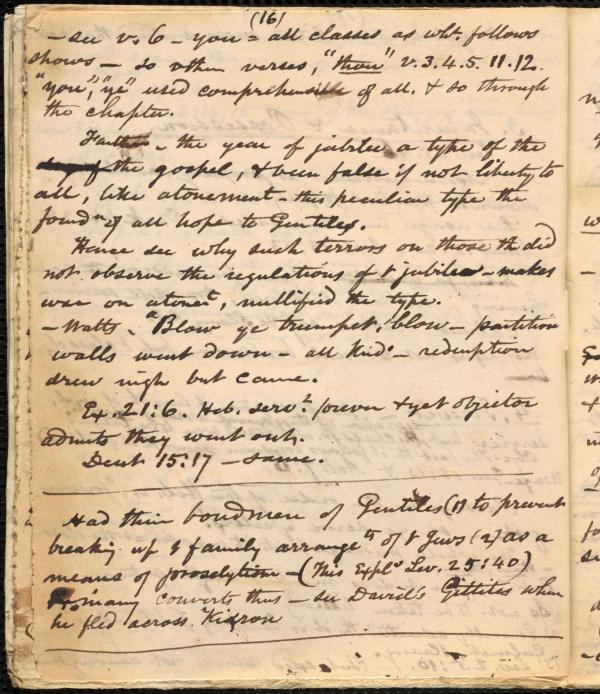 (16)
– see v. 6 – you = all classes as wht. follows
shows – so other verses, "thou" v. 3. 4. 5. 11. 12.
"you", "ye" used comprehensible of all. & so through
the chapter.
Farther – the year of jubilee a type of the
the gospel, & been false if not liberty to
all, like atonement – this peculiar type the
foundn of all hope to Gentiles.
Hence see why such terrors on those th did
not observe the regulations of t jubilee – makes
war on atonet, nullified the type.
– Watts – "Blow ye trumpet, blow – partition
walls went down – all kinds – redemption
drew nigh but came.
Ex. 21:6. Heb. servt forever & yet objector
admits they went out.
Deut 15:17 – same.
Had their bondmen of Gentiles (1) to prevent
breaking up t family arrangets of t Jews (2) as a
means of proselytism – (This Expls Lev. 25:40)
many converts thus – see David's Gittites when
he fled across Kidron